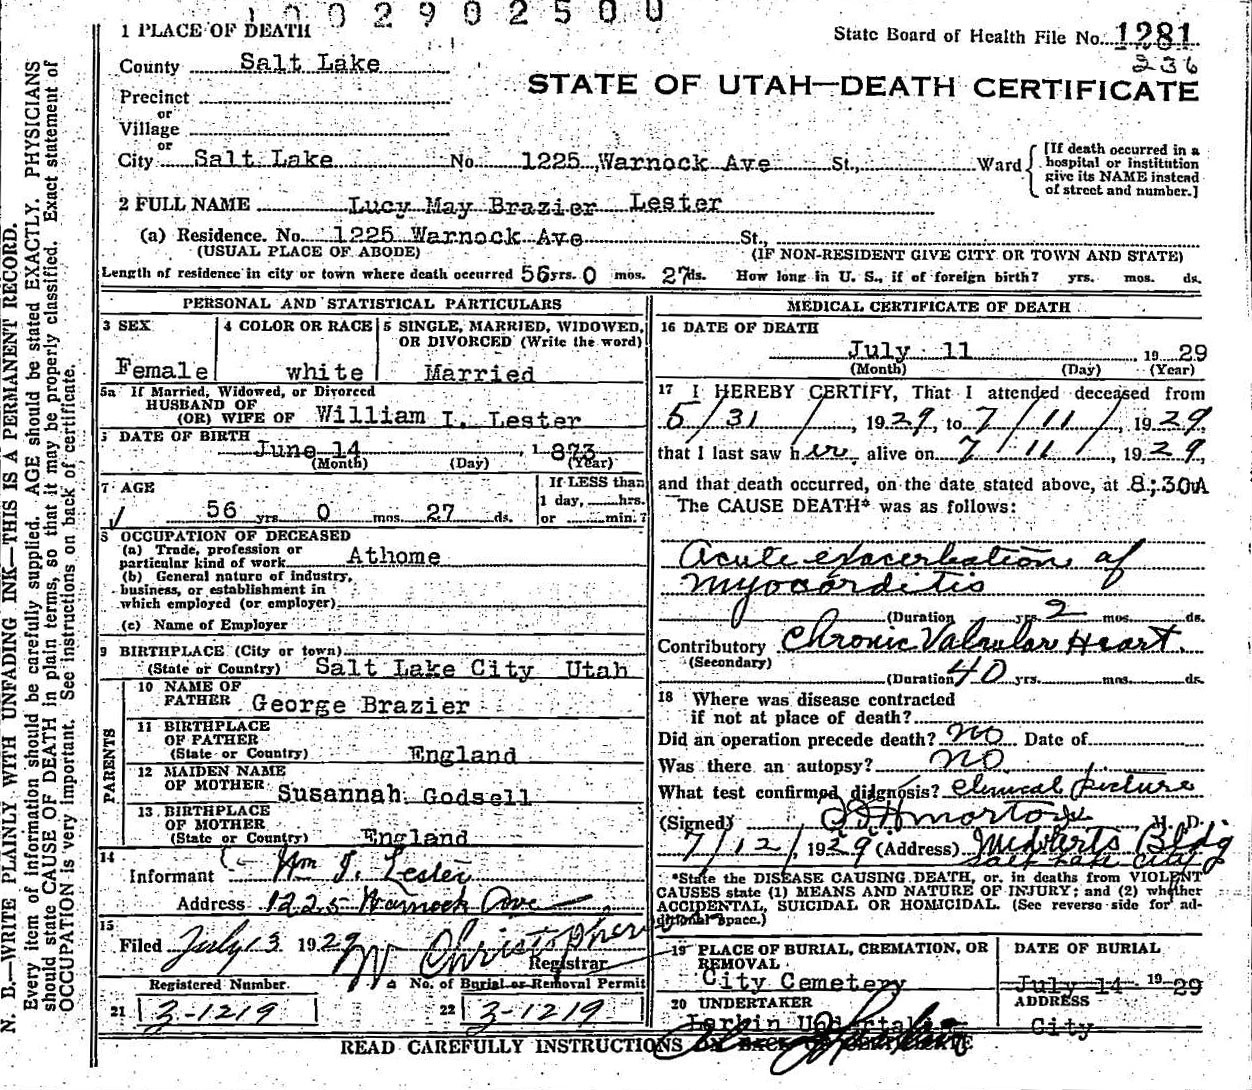 1002902500
1 PLACE OF DEATH
State Board of Health File No. 1281
236
County Salt Lake
STATE OF UTAH—DEATH CERTIFICATE
Precinct
or
Village
or
City Salt Lake No. 1225 Warnock Ave St., Ward
[If death occurred in a hospital or institution give its NAME instead of street and number.]
2 FULL NAME Lucy May Brazier Lester
(a) Residence. No. 1225 Warnock Ave St.,
(USUAL PLACE OF ABODE) (IF NON-RESIDENT GIVE CITY OR TOWN AND STATE)
Length of residence in city or town where death occurred 56 yrs. 0 mos. 27 ds. How long in U. S., if of foreign birth? yrs. mos. ds.
PERSONAL AND STATISTICAL PARTICULARS
3 SEX
Female
4 COLOR OR RACE
white
5 SINGLE, MARRIED, WIDOWED,
OR DIVORCED (Write the word)
Married
5a If Married, Widowed, or Divorced
HUSBAND OF
(OR) WIFE OF William I. Lester
DATE OF BIRTH
June 14, 1873
(Month) (Day) (Year)
7 AGE
56 yrs. 0 mos. 27 ds.
If LESS than
1 day, hrs.
or min.?
8 OCCUPATION OF DECEASED
(a) Trade, profession or
particular kind of work Athome
(b) General nature of industry,
business, or establishment in
which employed (or employer)
(c) Name of Employer
9 BIRTHPLACE (City or town)
(State or Country) Salt Lake City Utah
PARENTS
10 NAME OF
FATHER George Brazier
11 BIRTHPLACE
OF FATHER
(State or Country) England
12 MAIDEN NAME
OF MOTHER Susannah Godsell
13 BIRTHPLACE
OF MOTHER
(State or Country) England
14
Informant Wm I. Lester
Address 1225 Warnock Ave
15
Filed July 13 1929 W Christophers
Registrar
Registered Number. No. of Burial or Removal Permit
21 3-1219 22 3-1219
MEDICAL CERTIFICATE OF DEATH
16 DATE OF DEATH
July 11, 1929
(Month) (Day) (Year)
17 I HEREBY CERTIFY, That I attended deceased from
5/31/, 1929, to 7/11/, 1929,
that I last saw her alive on 7/11/, 1929,
and that death occurred, on the date stated above, at 8:30A
The CAUSE DEATH* was as follows:
Acute exacerbation of
myocarditis
(Duration yrs. 2 mos. ds.
Contributory Chronic Valvular Heart.
(Secondary)
(Duration 40 yrs. mos. ds.
18 Where was disease contracted
if not at place of death?
Did an operation precede death? no Date of
Was there an autopsy? no.
What test confirmed diagnosis? Clinical picture
(Signed) M. D.
7/12/, 1929. (Address) Med Arts Bldg
Salt Lake City
*State the DISEASE CAUSING DEATH, or, in deaths from VIOLENT
CAUSES state (1) MEANS AND NATURE OF INJURY; and (2) whether
ACCIDENTAL, SUICIDAL OR HOMICIDAL. (See reverse side for ad-
ditional space.)
19 PLACE OF BURIAL, CREMATION, OR
REMOVAL.
City Cemetery
DATE OF BURIAL
July 14 1929
20 UNDERTAKER
Larkin Undertaking
ADDRESS
City
READ CAREFULLY INSTRUCTIONS ON BACK OF CERTIFICATE
N. B.—WRITE PLAINLY WITH UNFADING INK—THIS IS A PERMANENT RECORD.
Every item of information should be carefully supplied. AGE should be stated EXACTLY. PHYSICIANS
should state CAUSE OF DEATH in plain terms, so that it may be properly classified. Exact statement of
OCCUPATION is very important. See instructions on back of certificate.